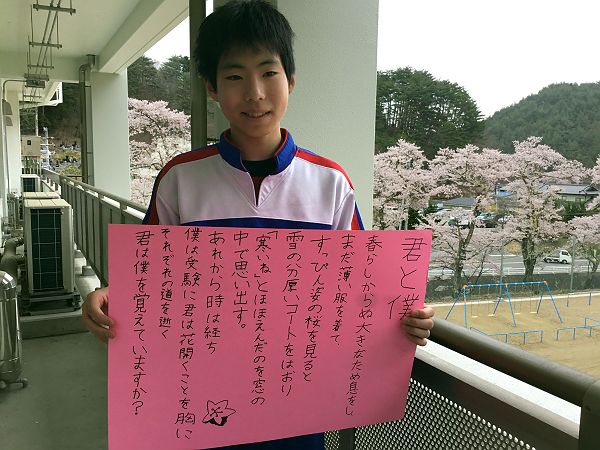 君と僕
春らしからぬ大きなため息をし
まだ薄い服を着て
すっぴん姿の桜を見ると
雪の分厚いコートをはおり
「寒いね」とほほえんだのを窓の
中で思い出す。
あれから時は経ち
僕は受験に君は花開くことを胸に
それぞれの道を逝く
君は僕を覚えていますか？